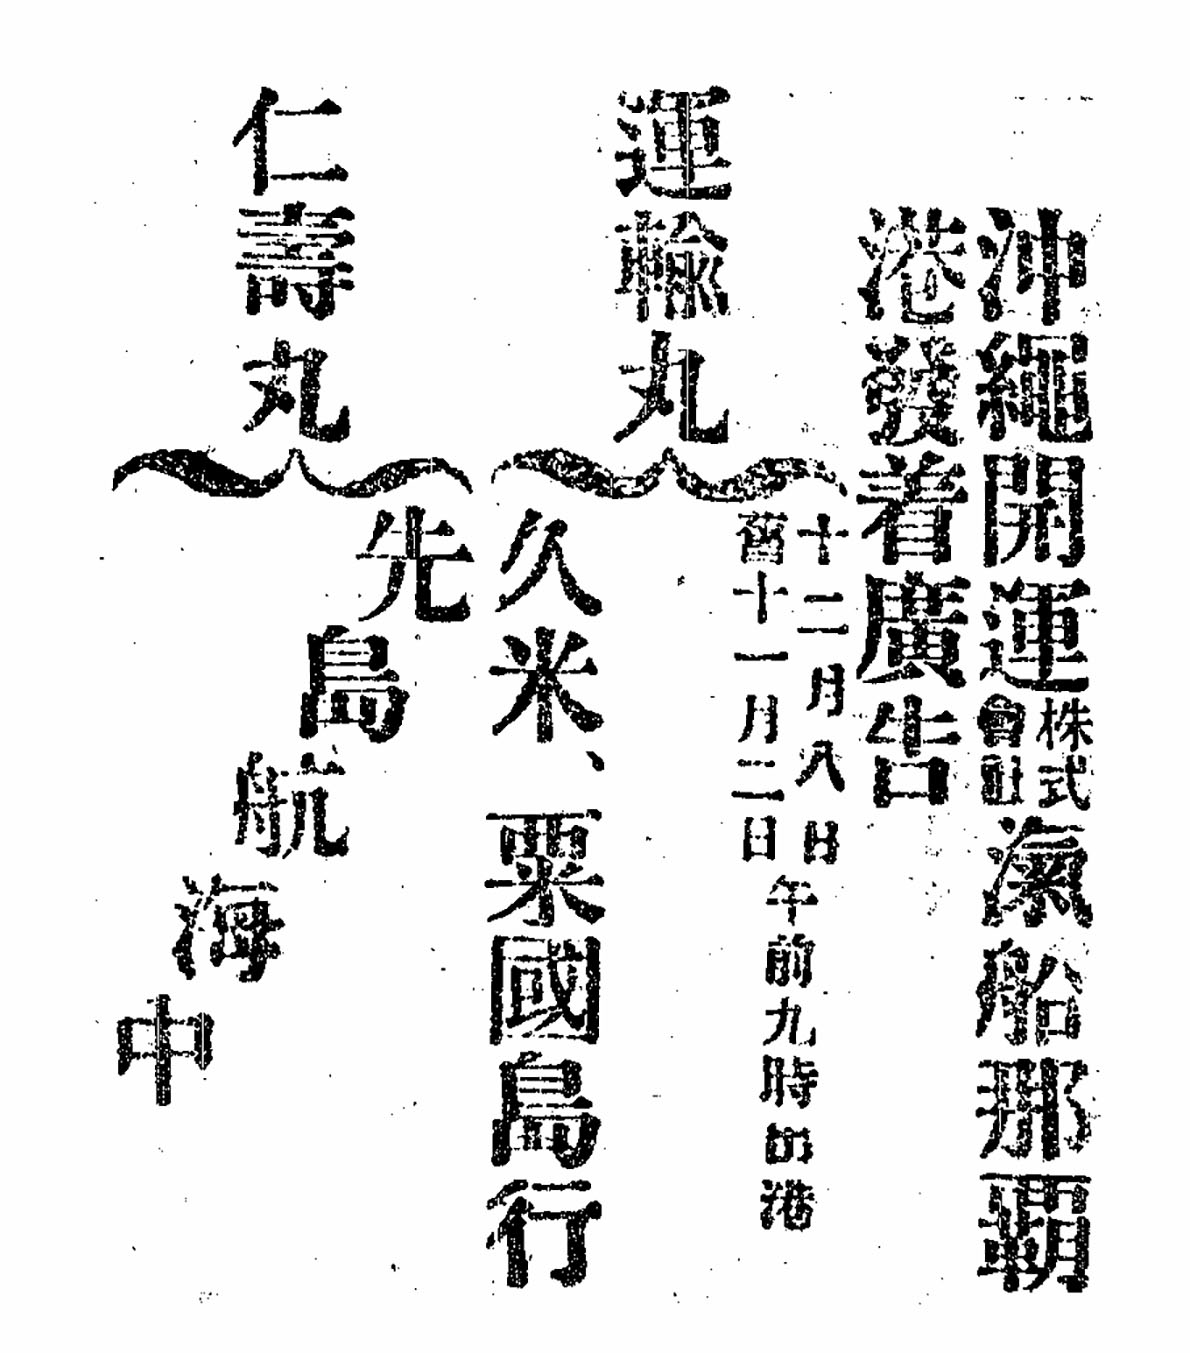 沖繩開運株式會社滊船那覇
港發着廣告
運輸丸
十二月八日
舊十一月二日
午前九時出港
久米、粟國島行
仁壽丸
先島航海中